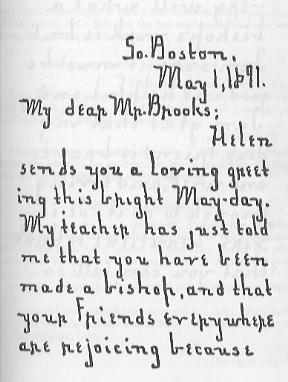 So. Boston,
May 1, 1891.
My dear Mr. Brooks;
Helen
sends you a loving greet
ing this bright May-day.
My teacher has just told
me that you have been
made a bishop, and that
your friends everywhere
are rejoicing because